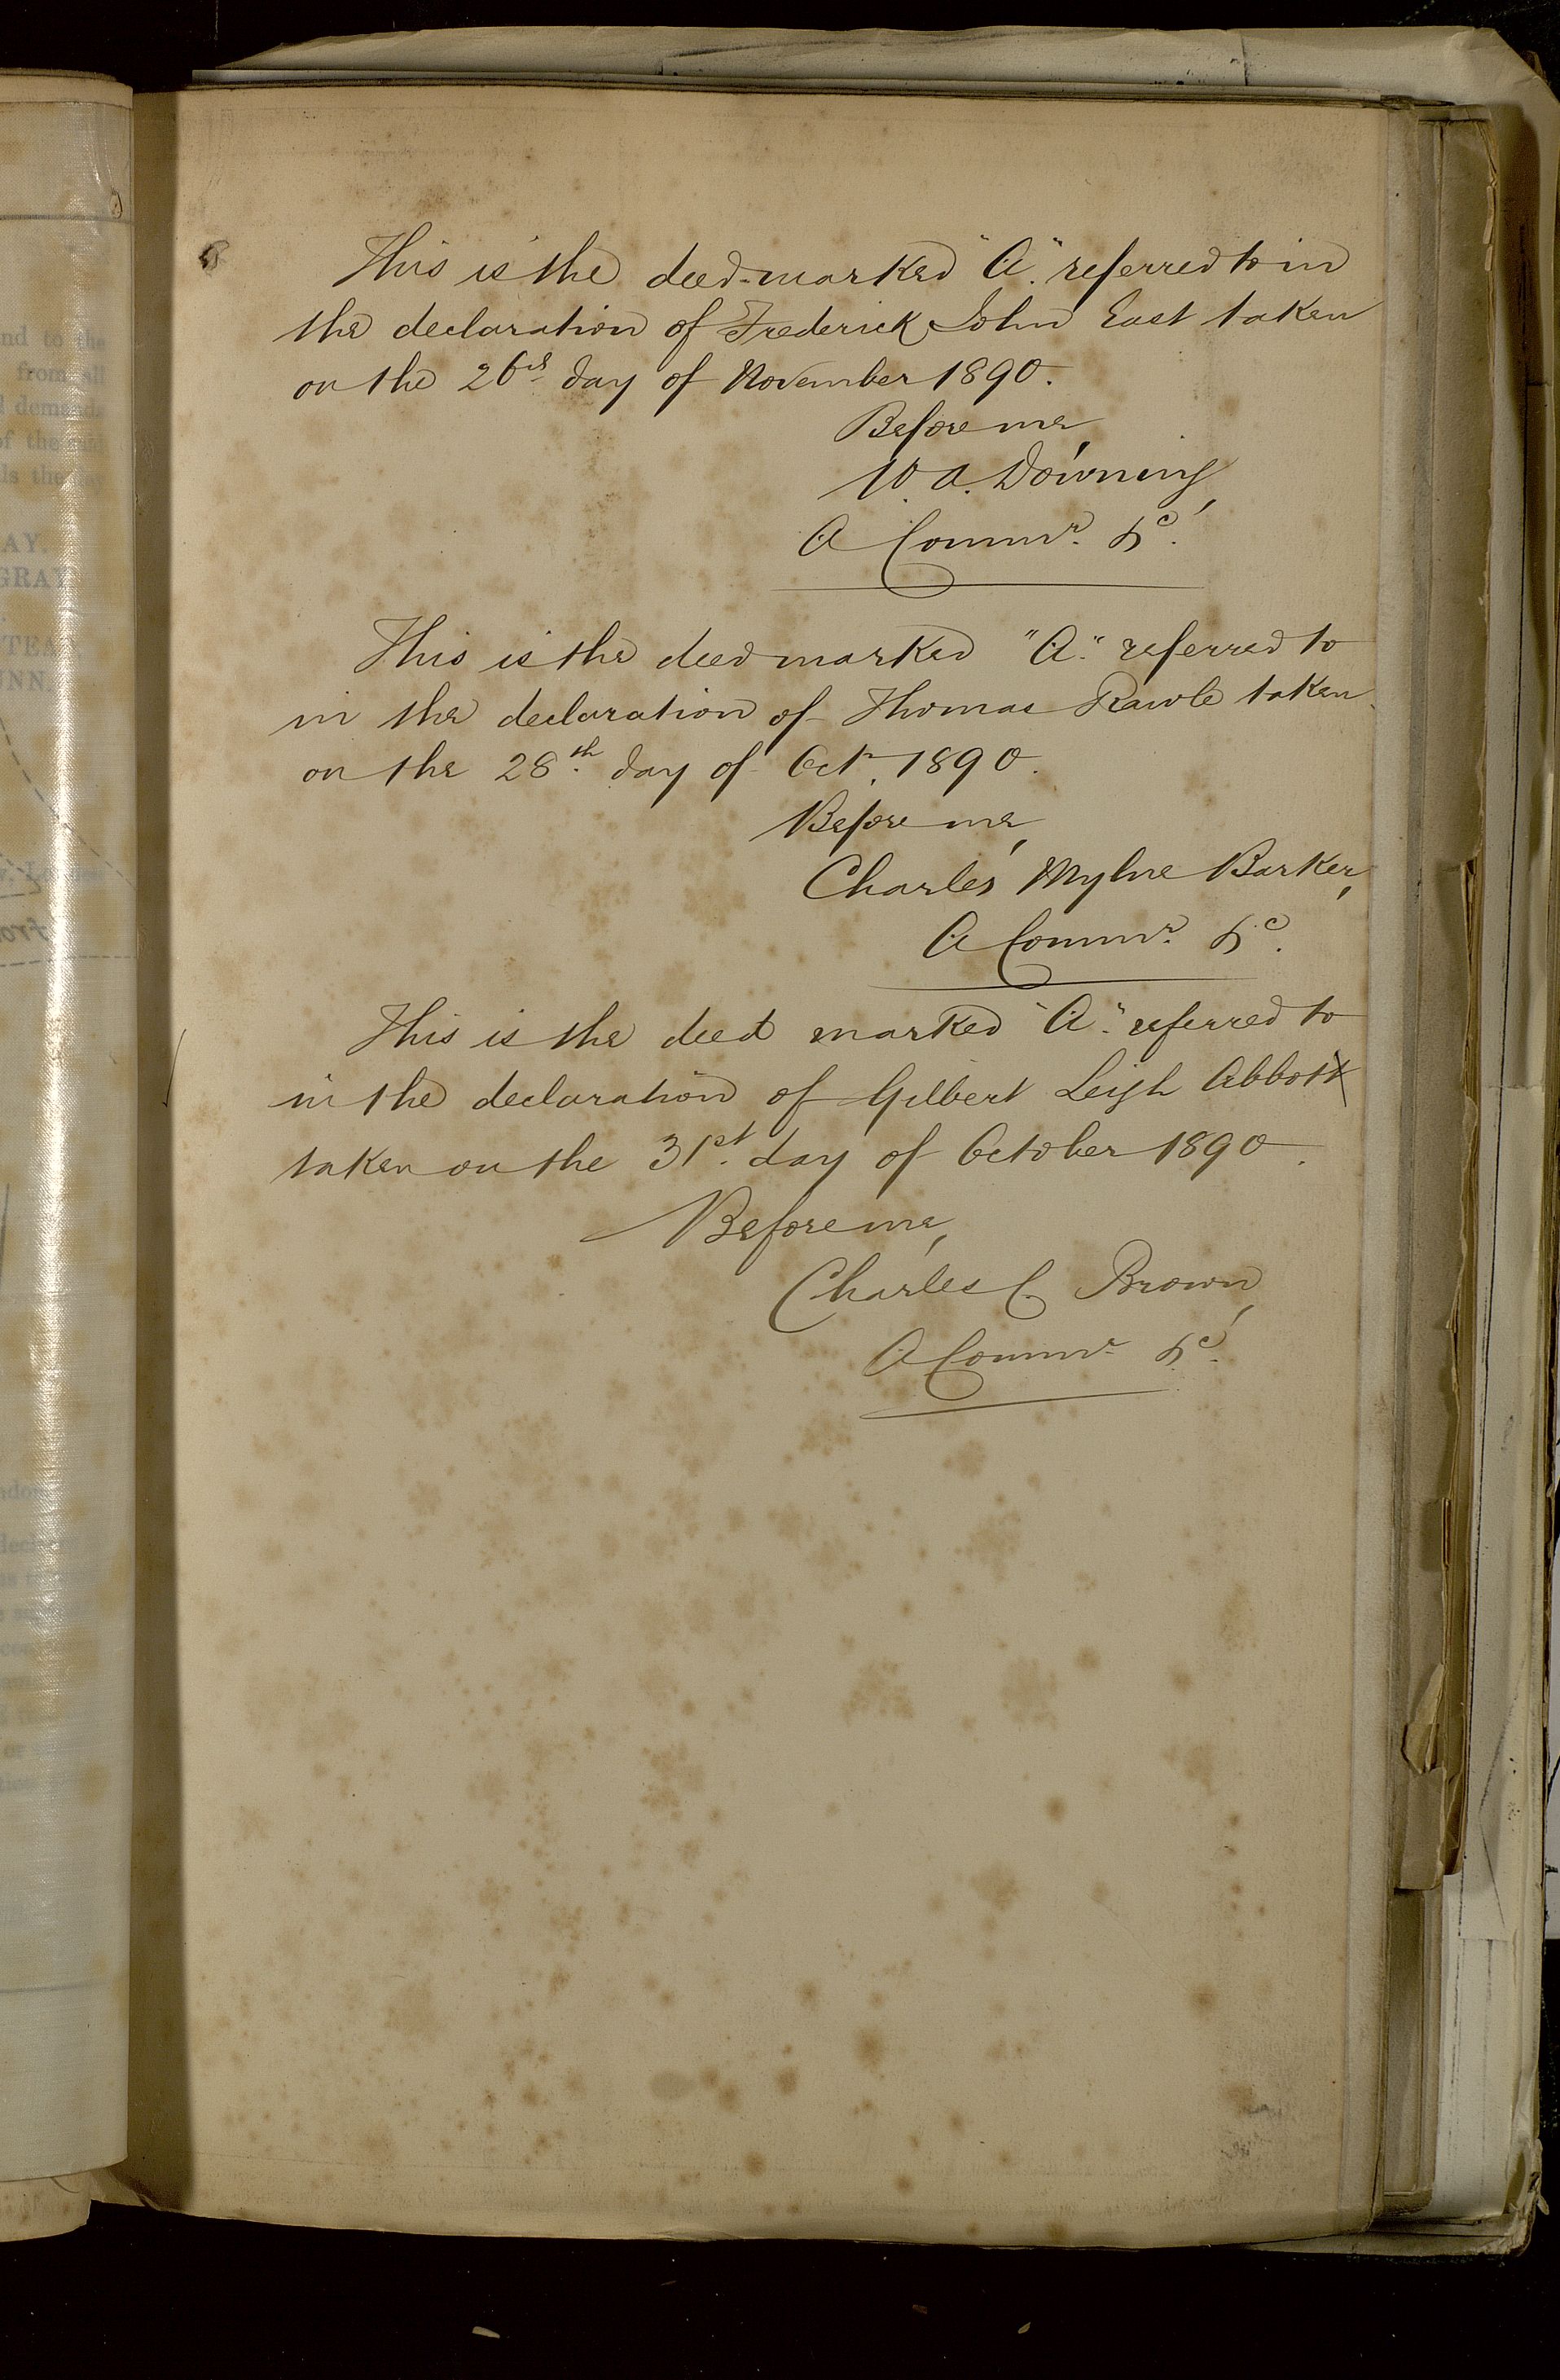 nd to the
from all
d demands
of the said
ls the day
AY.
GRAY
UNN.
8
This is the deed marked "A." referred to in
the declaration of Frederick John East taken
on the 26th day of November 1890.
Before me,
W. A. Downing,
A Commr. &c.
This is the deed marked "A." referred to
in the declaration of Thomas Rawle taken
on the 28th. day of Octr. 1890.
Before me,
Charles Mylne Barker,
A Commr. &c.
This is the deed marked "A." referred to
in the declaration of Gilbert Leigh Abbott
taken on the 31st. day of October 1890.
Before me,
Charles C. Brown,
A Commr. &c.